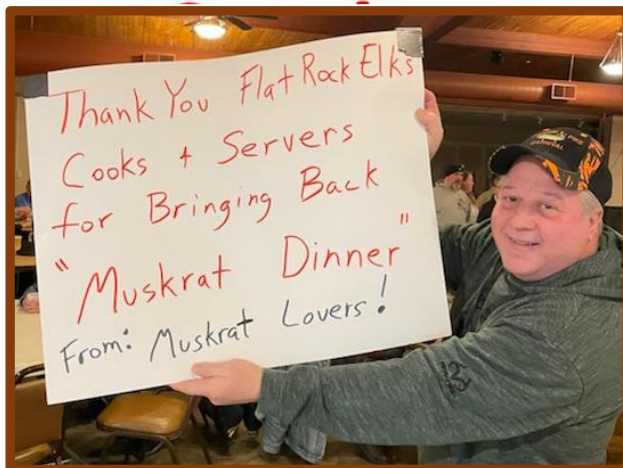 Thank You Flat Rock Elks
Cooks + Servers
for Bringing Back
"Muskrat Dinner"
From: Muskrat Lovers!